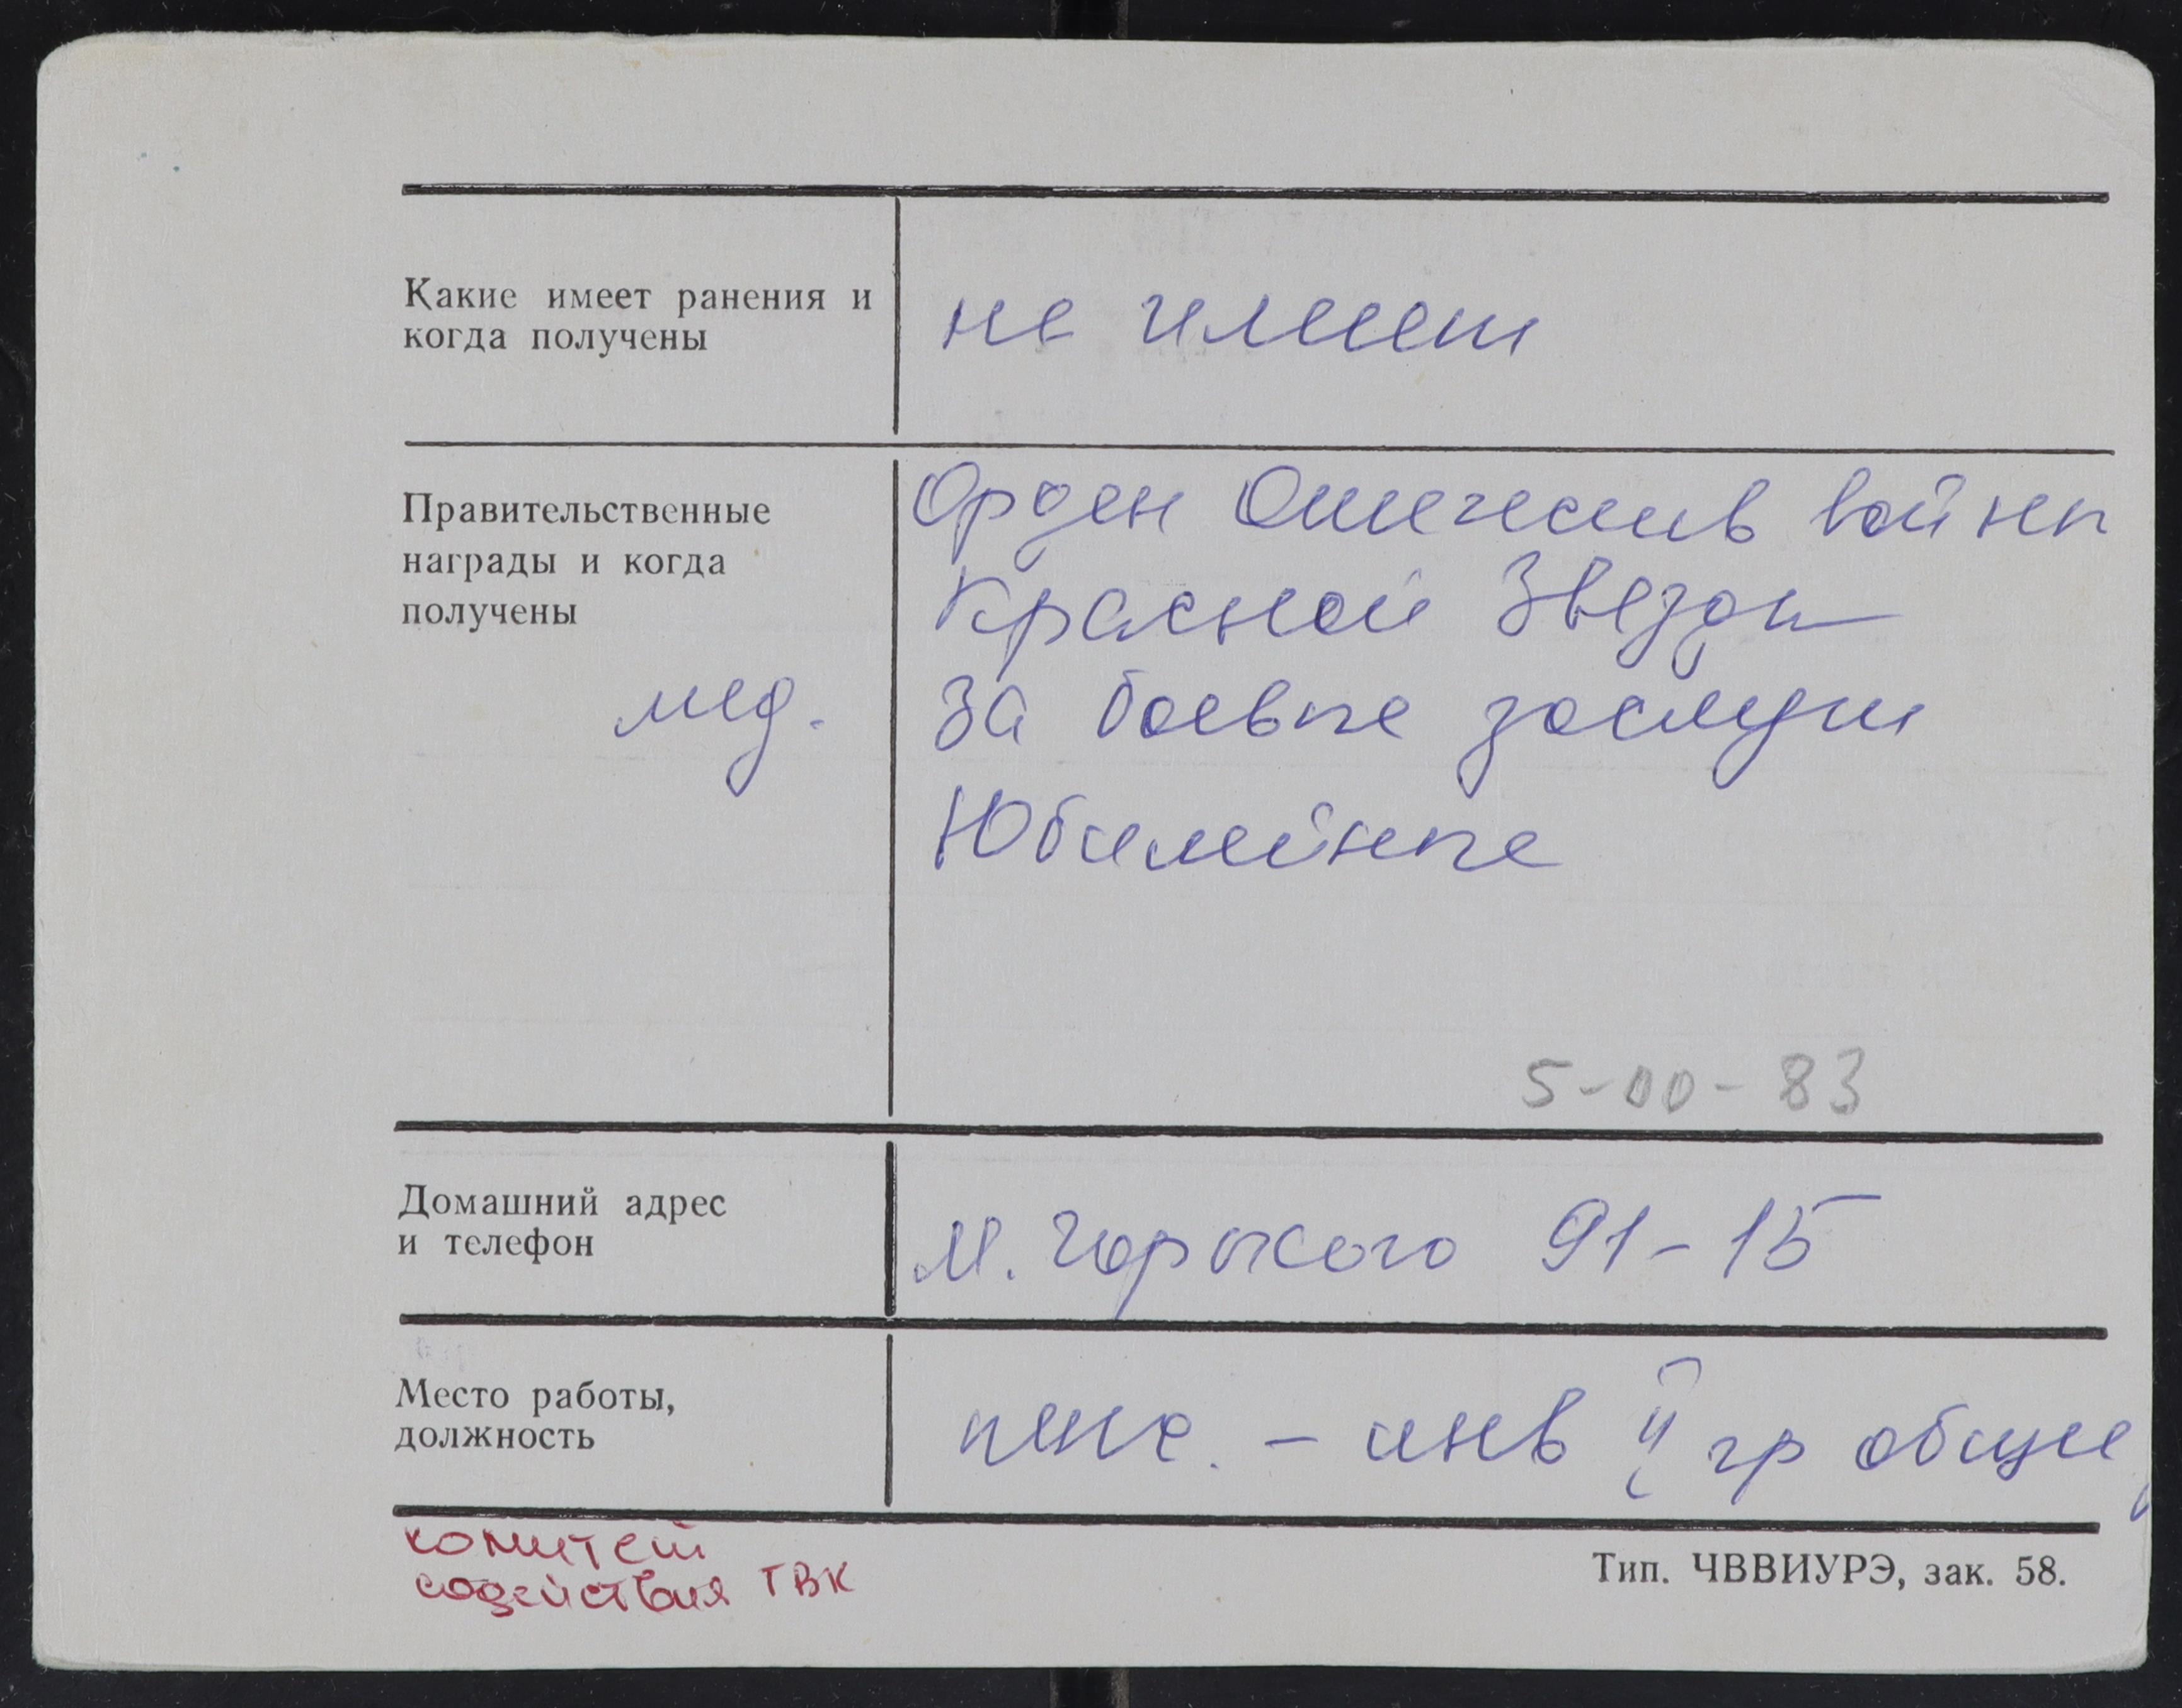 Какие имеет ранения и
когда получены
не имеет
Правительственные
награды и когда
получены
мед.
Орден Отечеств войны
Красной Звезды
За боевые заслуги
Юбилейные
5-00-83
Домашний адрес
и телефон
М. Горького 91-15
Место работы,
должность
пенс. - инв II гр общее
комитет
содействия ТВК
Тип. ЧВВИУРЭ, зак. 58.